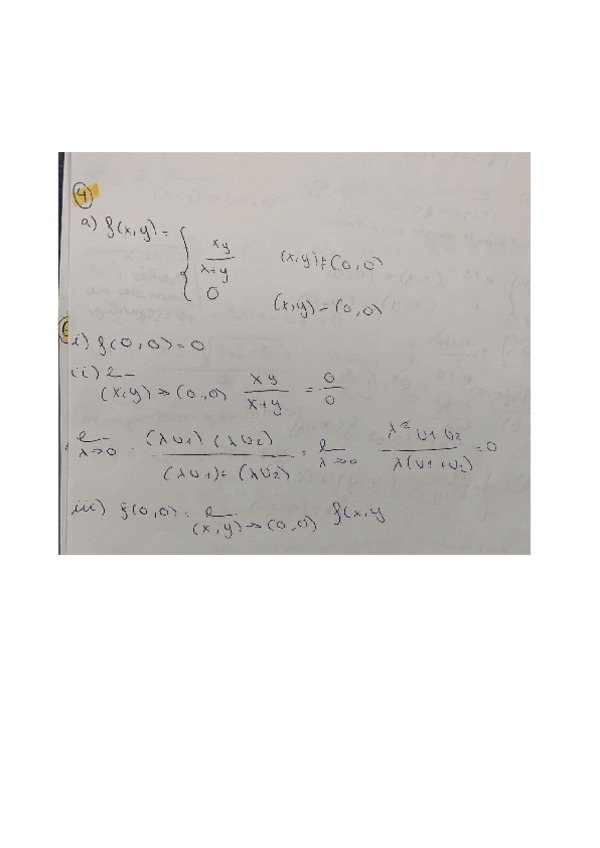 4
a) f(x,y) = { xy / x+y   (x,y) ≠ (0,0)
0   (x,y) = (0,0)
i) f(0,0) = 0
ii) l (x,y) → (0,0) xy / x+y = 0/0
l λ→0 (λu1) (λu2) / (λu1) + (λu2) = l λ→0 λ² u1 u2 / λ(u1+u2) = 0
iii) f(0,0) = l (x,y) → (0,0) f(x,y